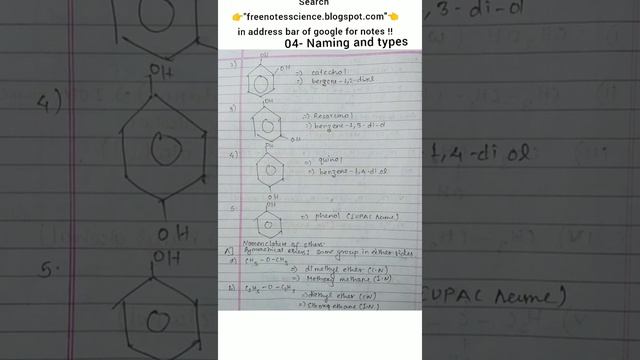 Search
👉"freenotesscience.blogspot.com"👈
in address bar of google for notes !!
04- Naming and types
OH
2)
OH
⇒ catechol
⇒ benzene-1,2-diol
OH
3)
⇒ Resorcinol
⇒ benzene-1,3-di-ol
OH
OH
4)
⇒ quinol
⇒ benzene-1,4-di ol
OH
5.
OH
⇒ phenol (IUPAC Name)
Nomenclature of ethers
A] Symmetrical ethers: same group in either sides
a) CH3 - O - CH3
⇒ dimethyl ether (C.N)
⇒ Methoxy methane (I.N)
b) C2H5 - O - C2H5
⇒ diethyl ether (CN)
⇒ Ethoxy ethane (I.N.)
4)
OH
OH
5.
OH
3-di-ol
1,4-di ol
(IUPAC Name)